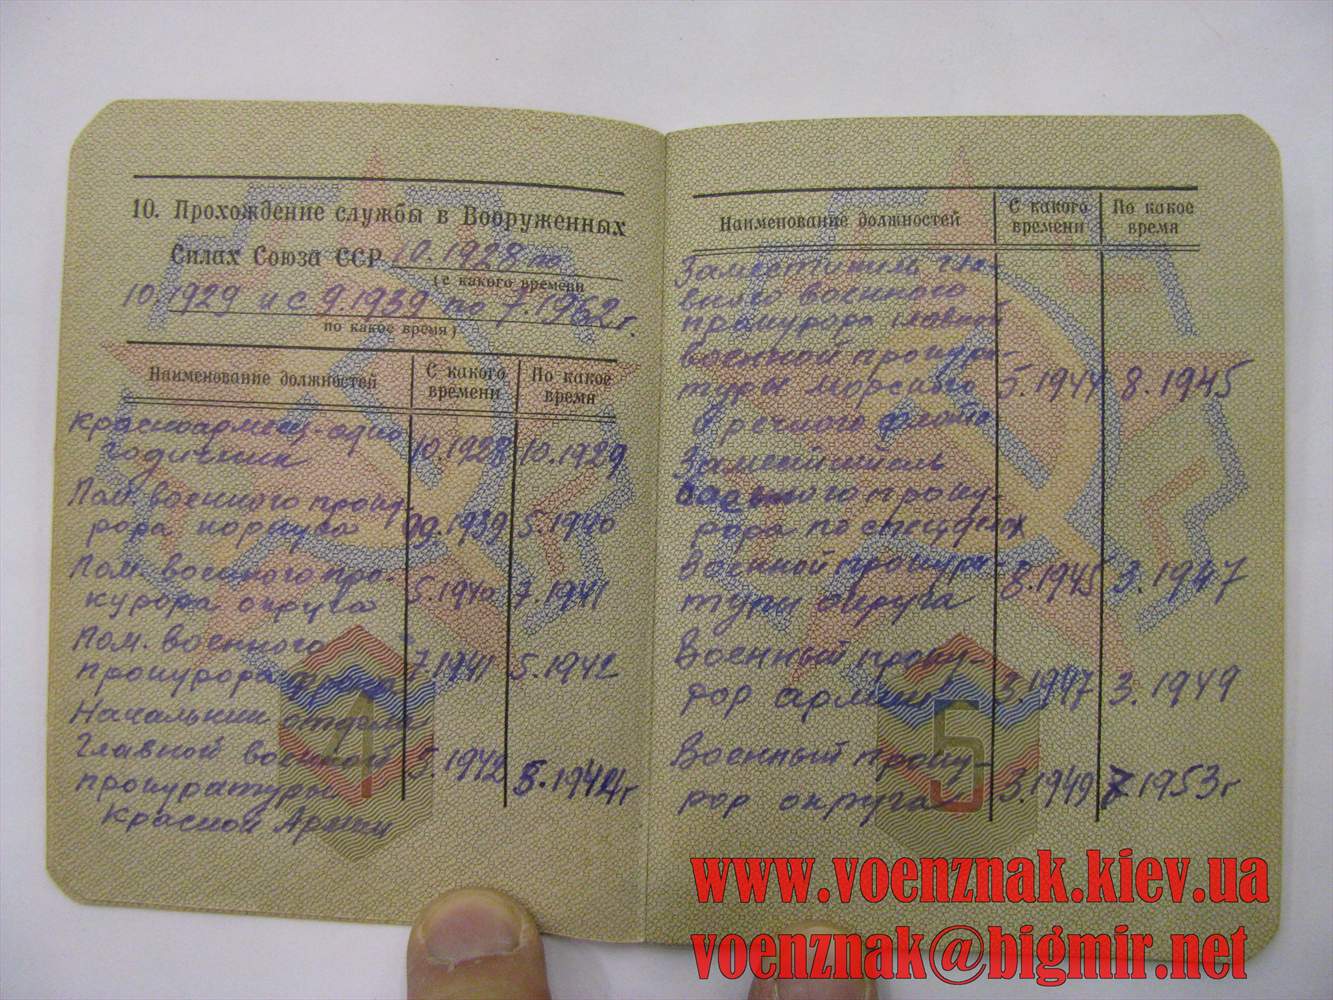 10. Прохождение службы в Вооруженных
Силах Союза ССР 10.1928 по
(с какого времени
10.1929 и с 9.1939 по 7.1962 г.
по какое время)
Наименование должностей С какого времени По какое время
красноармеец-одно
годичник 10.1928 10.1929
Пом. военного проку
рора корпуса 09.1939 5.1940
Пом. военного про-
курора округа 5.1940 7.1941
Пом. военного
прокурора фронта 7.1941 5.1942
Начальник отдела
Главной военной 5.1942 5.1944г
прокуратуры
Красной Армии
4
Наименование должностей С какого времени По какое время
Заместитель гла-
вного военного
прокурора главной
военной прокура-
туры морского 5.1944 8.1945
и речного флота
Заместитель
военного проку-
рора по спецделам
Военной прокура-
туры округа 8.1945 3.1947
Военный проку-
рор армии 3.1947 3.1949
Военный проку-
рор округа 3.1949 7.1953г
5
www.voenznak.kiev.ua
voenznak@bigmir.net